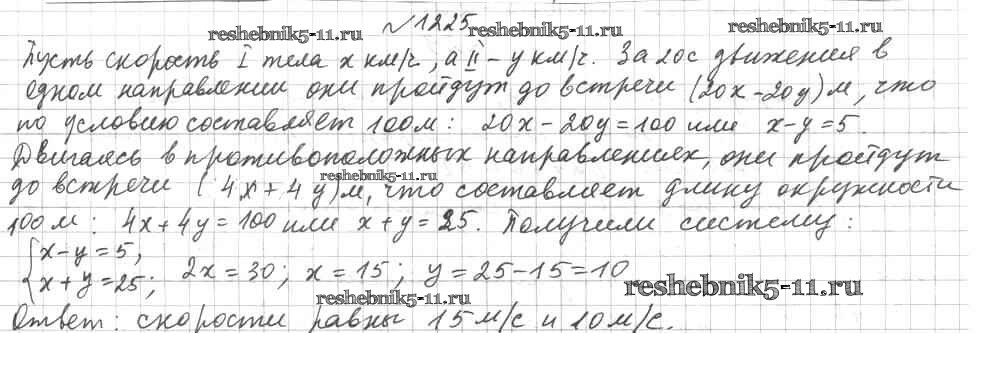 №1225
reshebnik5-11.ru reshebnik5-11.ru reshebnik5-11.ru
Пусть скорость I тела x км/ч, а II – y км/ч. За 20с движения в
одном направлении они пройдут до встречи (20x-20y)м, что
по условию составляет 100м: 20x-20y=100 или x-y=5.
Двигаясь в противоположных направлениях, они пройдут
reshebnik5-11.ru
до встречи (4x+4y)м, что составляет длину окружности
100м: 4x+4y=100 или x+y=25. Получили систему:
{x-y=5,
{x+y=25; 2x=30; x=15; y=25-15=10
reshebnik5-11.ru reshebnik5-11.ru
Ответ: скорости равны 15м/с и 10м/с.